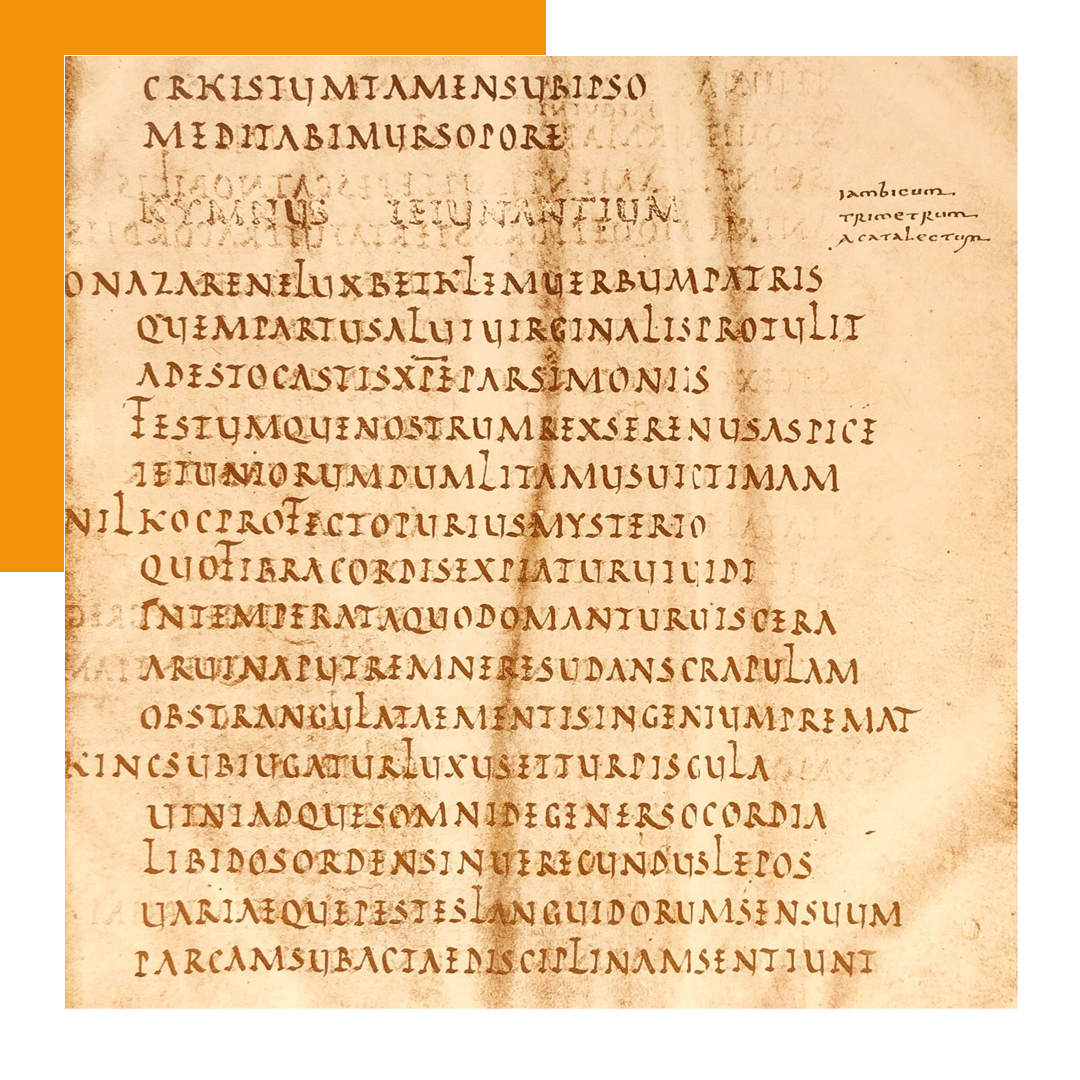 CRHISTUMTAMENSUBIPSO
MEDITABIMURSOPORE
HYMNUS IEIUNANTIUM
iambicum
trimetrum
acatalectum
ONAZARENELUXBETHLEMUERBUMPATRIS
QUEMPARTUSALUIUIRGINALISPROTULIT
ADESTOCASTISXP̅E̅PARSIMONIIS
FESTUMQUENOSTRUMREXSERENUSASPICE
IEIUNIORUMDUMLITAMUSUICTIMAM
NILHOCPROFECTOPURIUSMYSTERIO
QUOFIBRACORDISEXPIATURUIUIDI
INTEMPERATAQUODOMANTURUISCERA
ARUINAPUTREMNERESUDANSCRAPULAM
OBSTRANGULATAEMENTISINGENIUMPREMAT
HINCSUBIUGATURLUXUSETTURPISGULA
UINIADQUESOMNIDEGENERSOCORDIA
LIBIDOSORDENSINUERECUNDUSLEPOS
UARIAEQUEPESTESLANGUIDORUMSENSUUM
PARCAMSUBACTAEDISCIPLINAMSENTIUNT